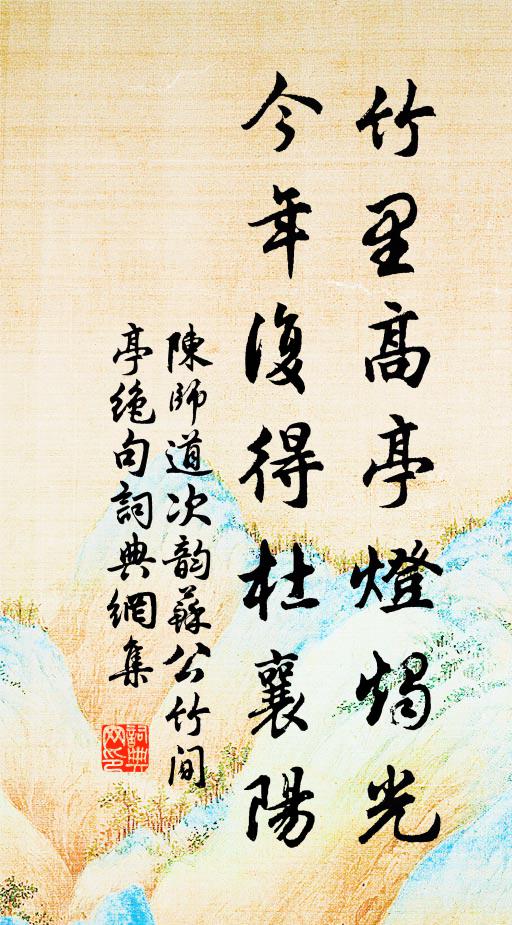 竹里高亭燈燭光
今年復得杜襄陽
陳師道次韵蘇公竹间
亭絶句詞典網集
詞典網印